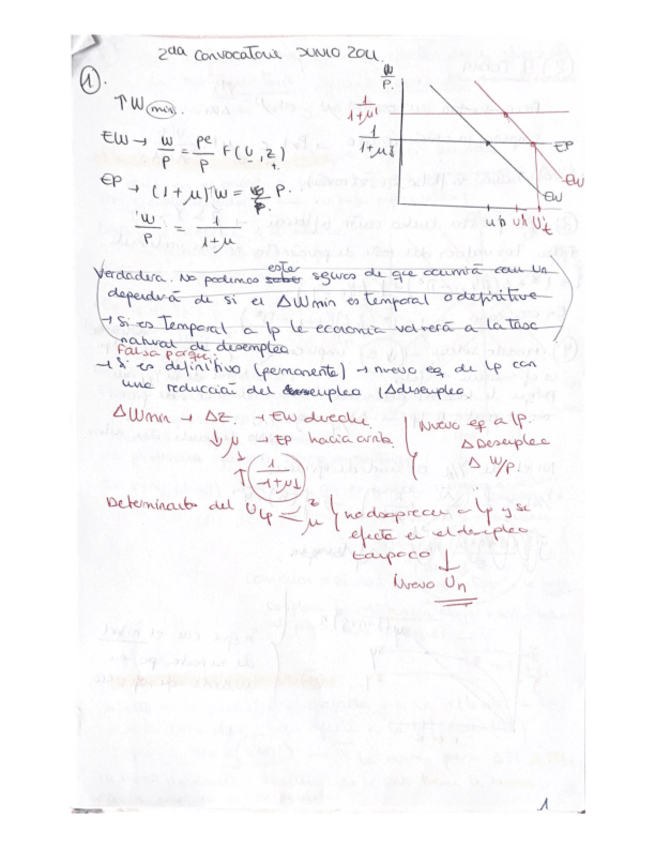 2da Convocatoria JUNIO 2011.
1.
↑ W min.
EW → W/P = Pe/P F(u, z)
+
EP → (1 + μ) W = P.
W/P = 1/(1+μ)
W/P.
1/(1+μ')
1/(1+μ)
EP
EW
EW'
un
Verdadera. No podemos estar seguros de que ocurrirá con Un
dependerá de si el ΔWmin es temporal o definitivo
→ Si es Temporal a lp la economía volverá a la tasa
natural de desempleo
Falsa porque:
→ Si es definitivo (permanente) → nuevo eq. de lp con
una reducción del desempleo
ΔWmin → ΔZ → EW derecha
↓ μ → EP hacia arriba
↑ 1/(1+μ↓)
Nuevo eq a lp.
Δ Desempleo
Δ W/P.
Determinantes del Ulp z μ
no desaparecen a lp y su
efecto en el desempleo
tampoco
↓
Nuevo Un
1